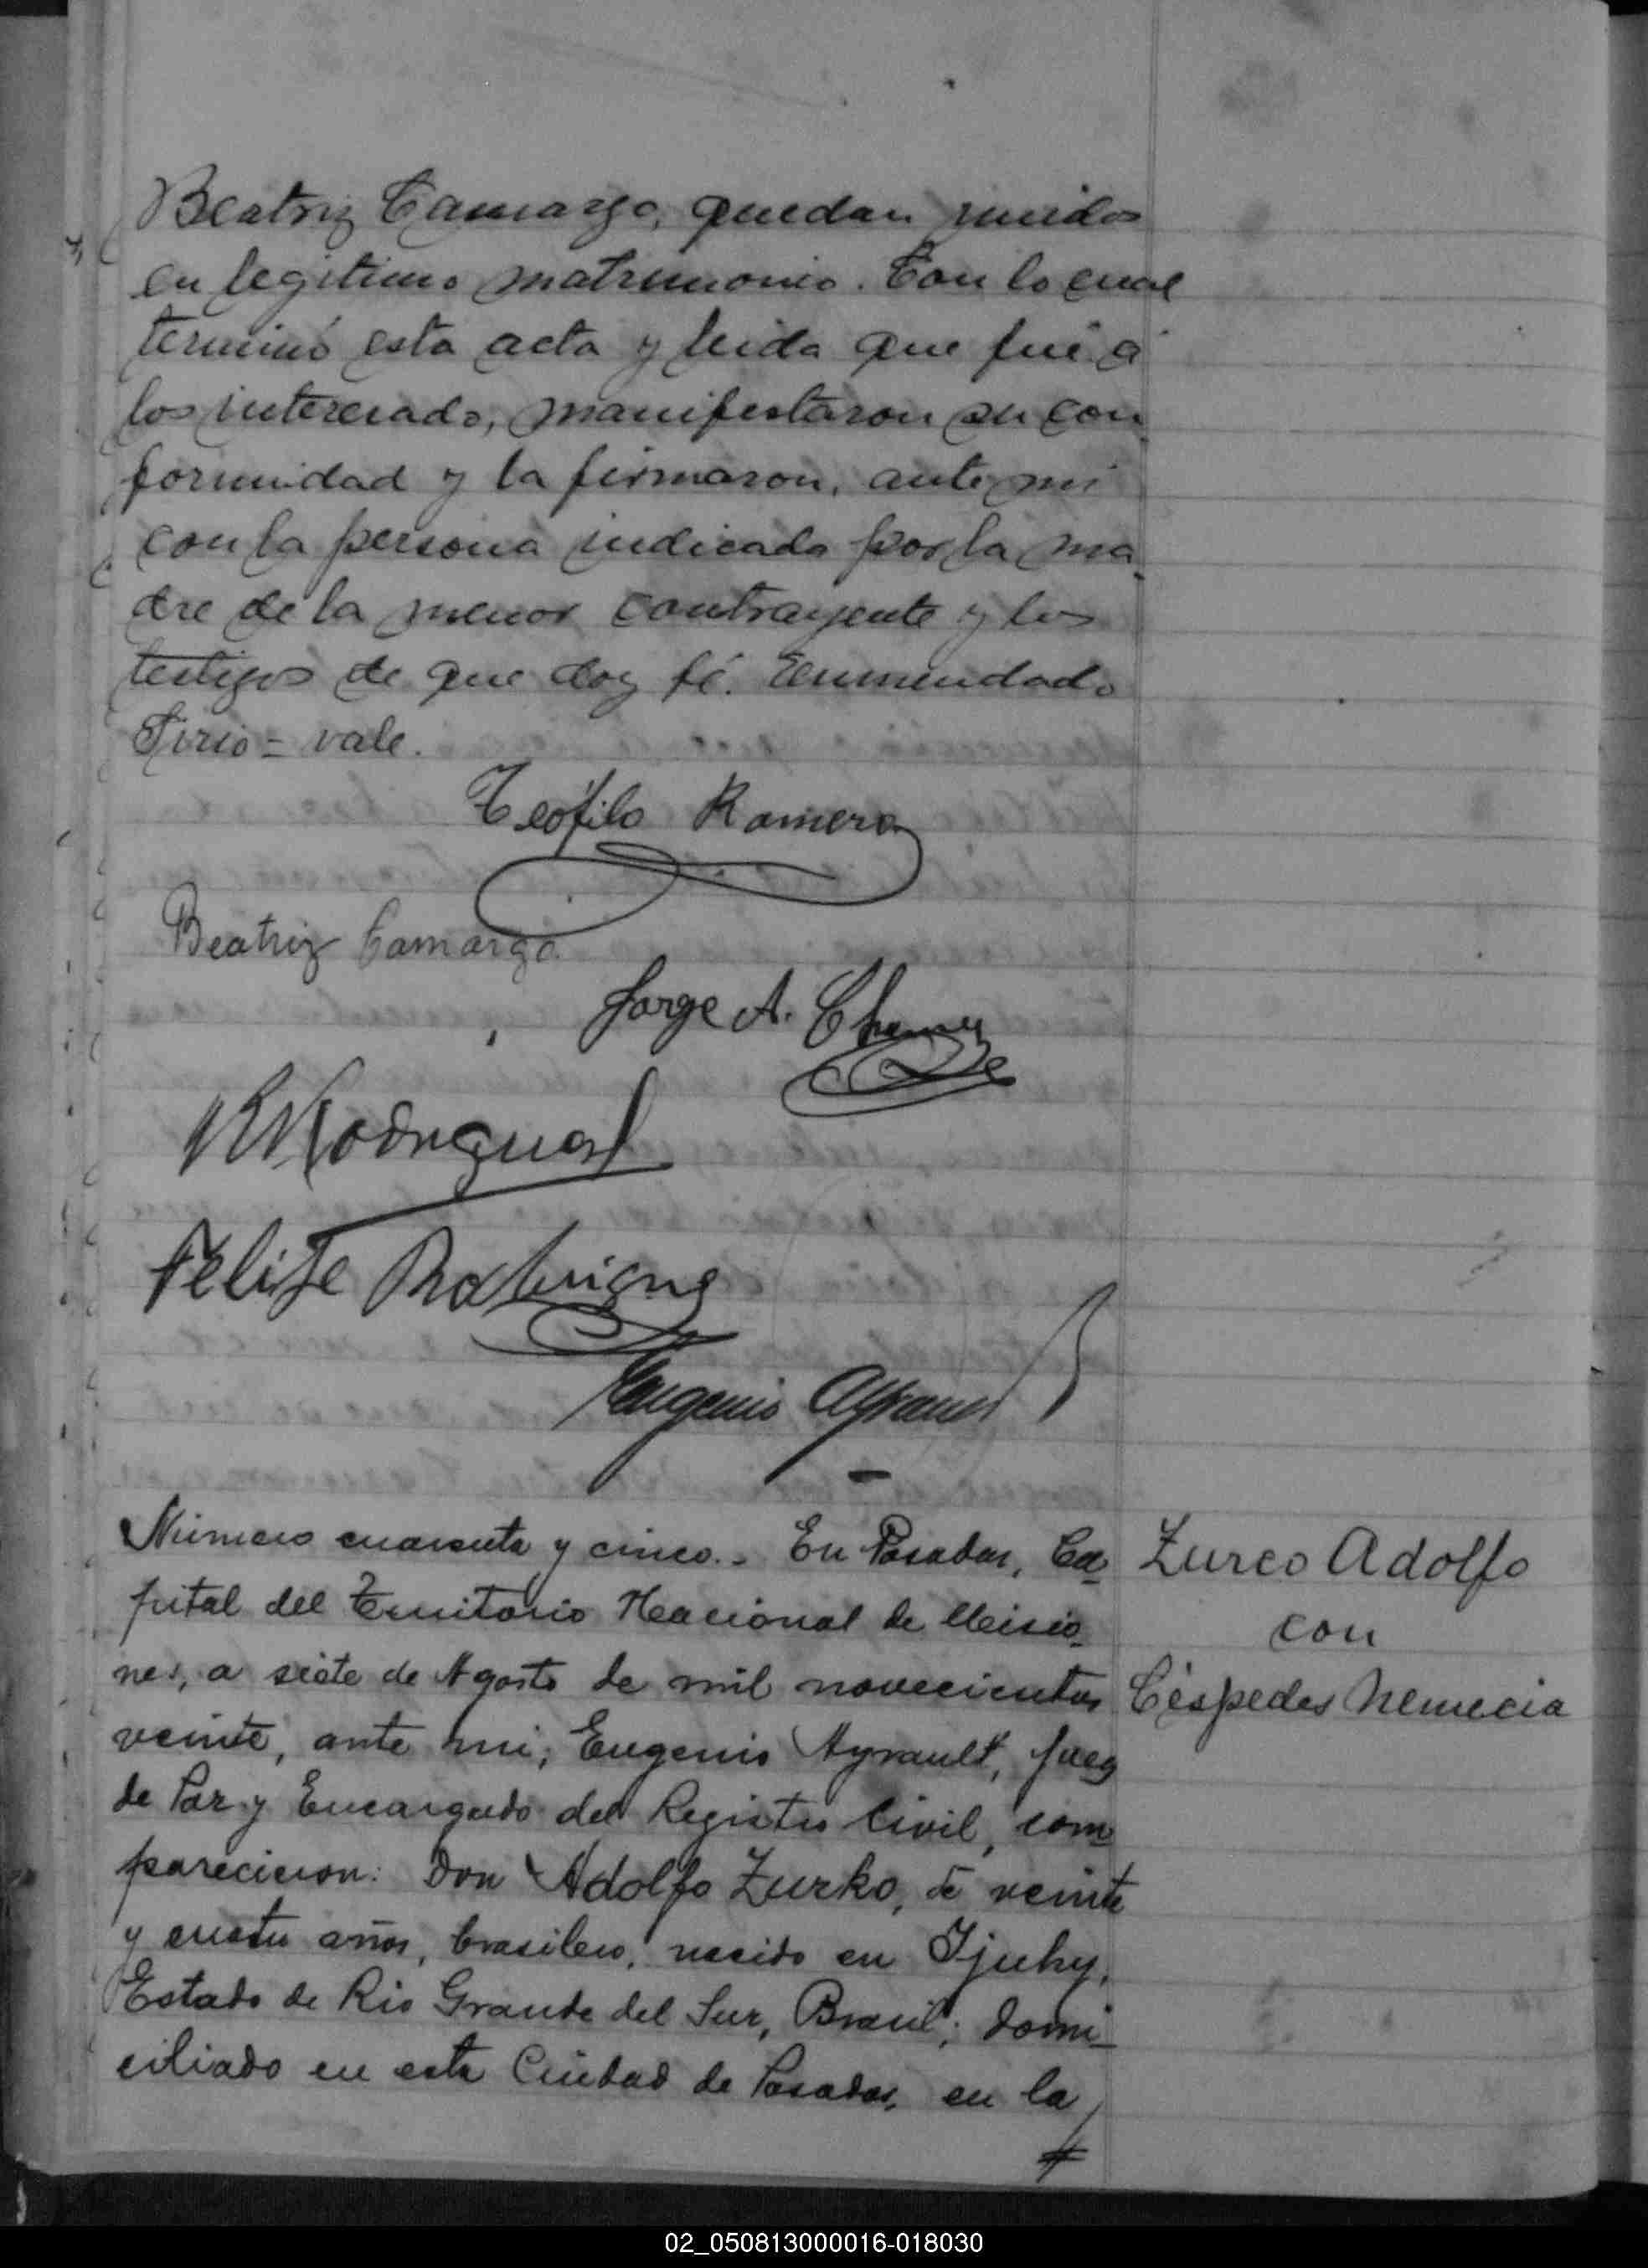 Beatriz Camargo, quedan unidos
en legitimo matrimonio. Con lo cual
terminó esta acta y leida que fué á
los interesado, manifestaron su con
formidad y la firmaron, ante mi
con la persona indicada por la ma
dre de la menor contrayente y los
testigos de que doy fé. Enmendado
Tirio = vale.
Teófilo Romero
Beatriz Camargo
Jorge A.
Rodriguez
Felipe Rodrigue
Eugenio Ayrault
Número cuarenta y cinco.- En Posadas, Ca-
pital del Territorio Nacional de Misio-
nes, a siete de Agosto de mil novecientos
veinte, ante mi, Eugenio Ayrault, Juez
de Paz y Encargado del Registro Civil, com
parecieron: Don Adolfo Zurko, de veinte
y cuatro años, brasilero, nacido en Ijuhy,
Estado de Rio Grande del Sur, Brasil; domi-
ciliado en esta Ciudad de Posadas, en la
Zurco Adolfo
con
Céspedes Nemecia
02_050813000016-018030